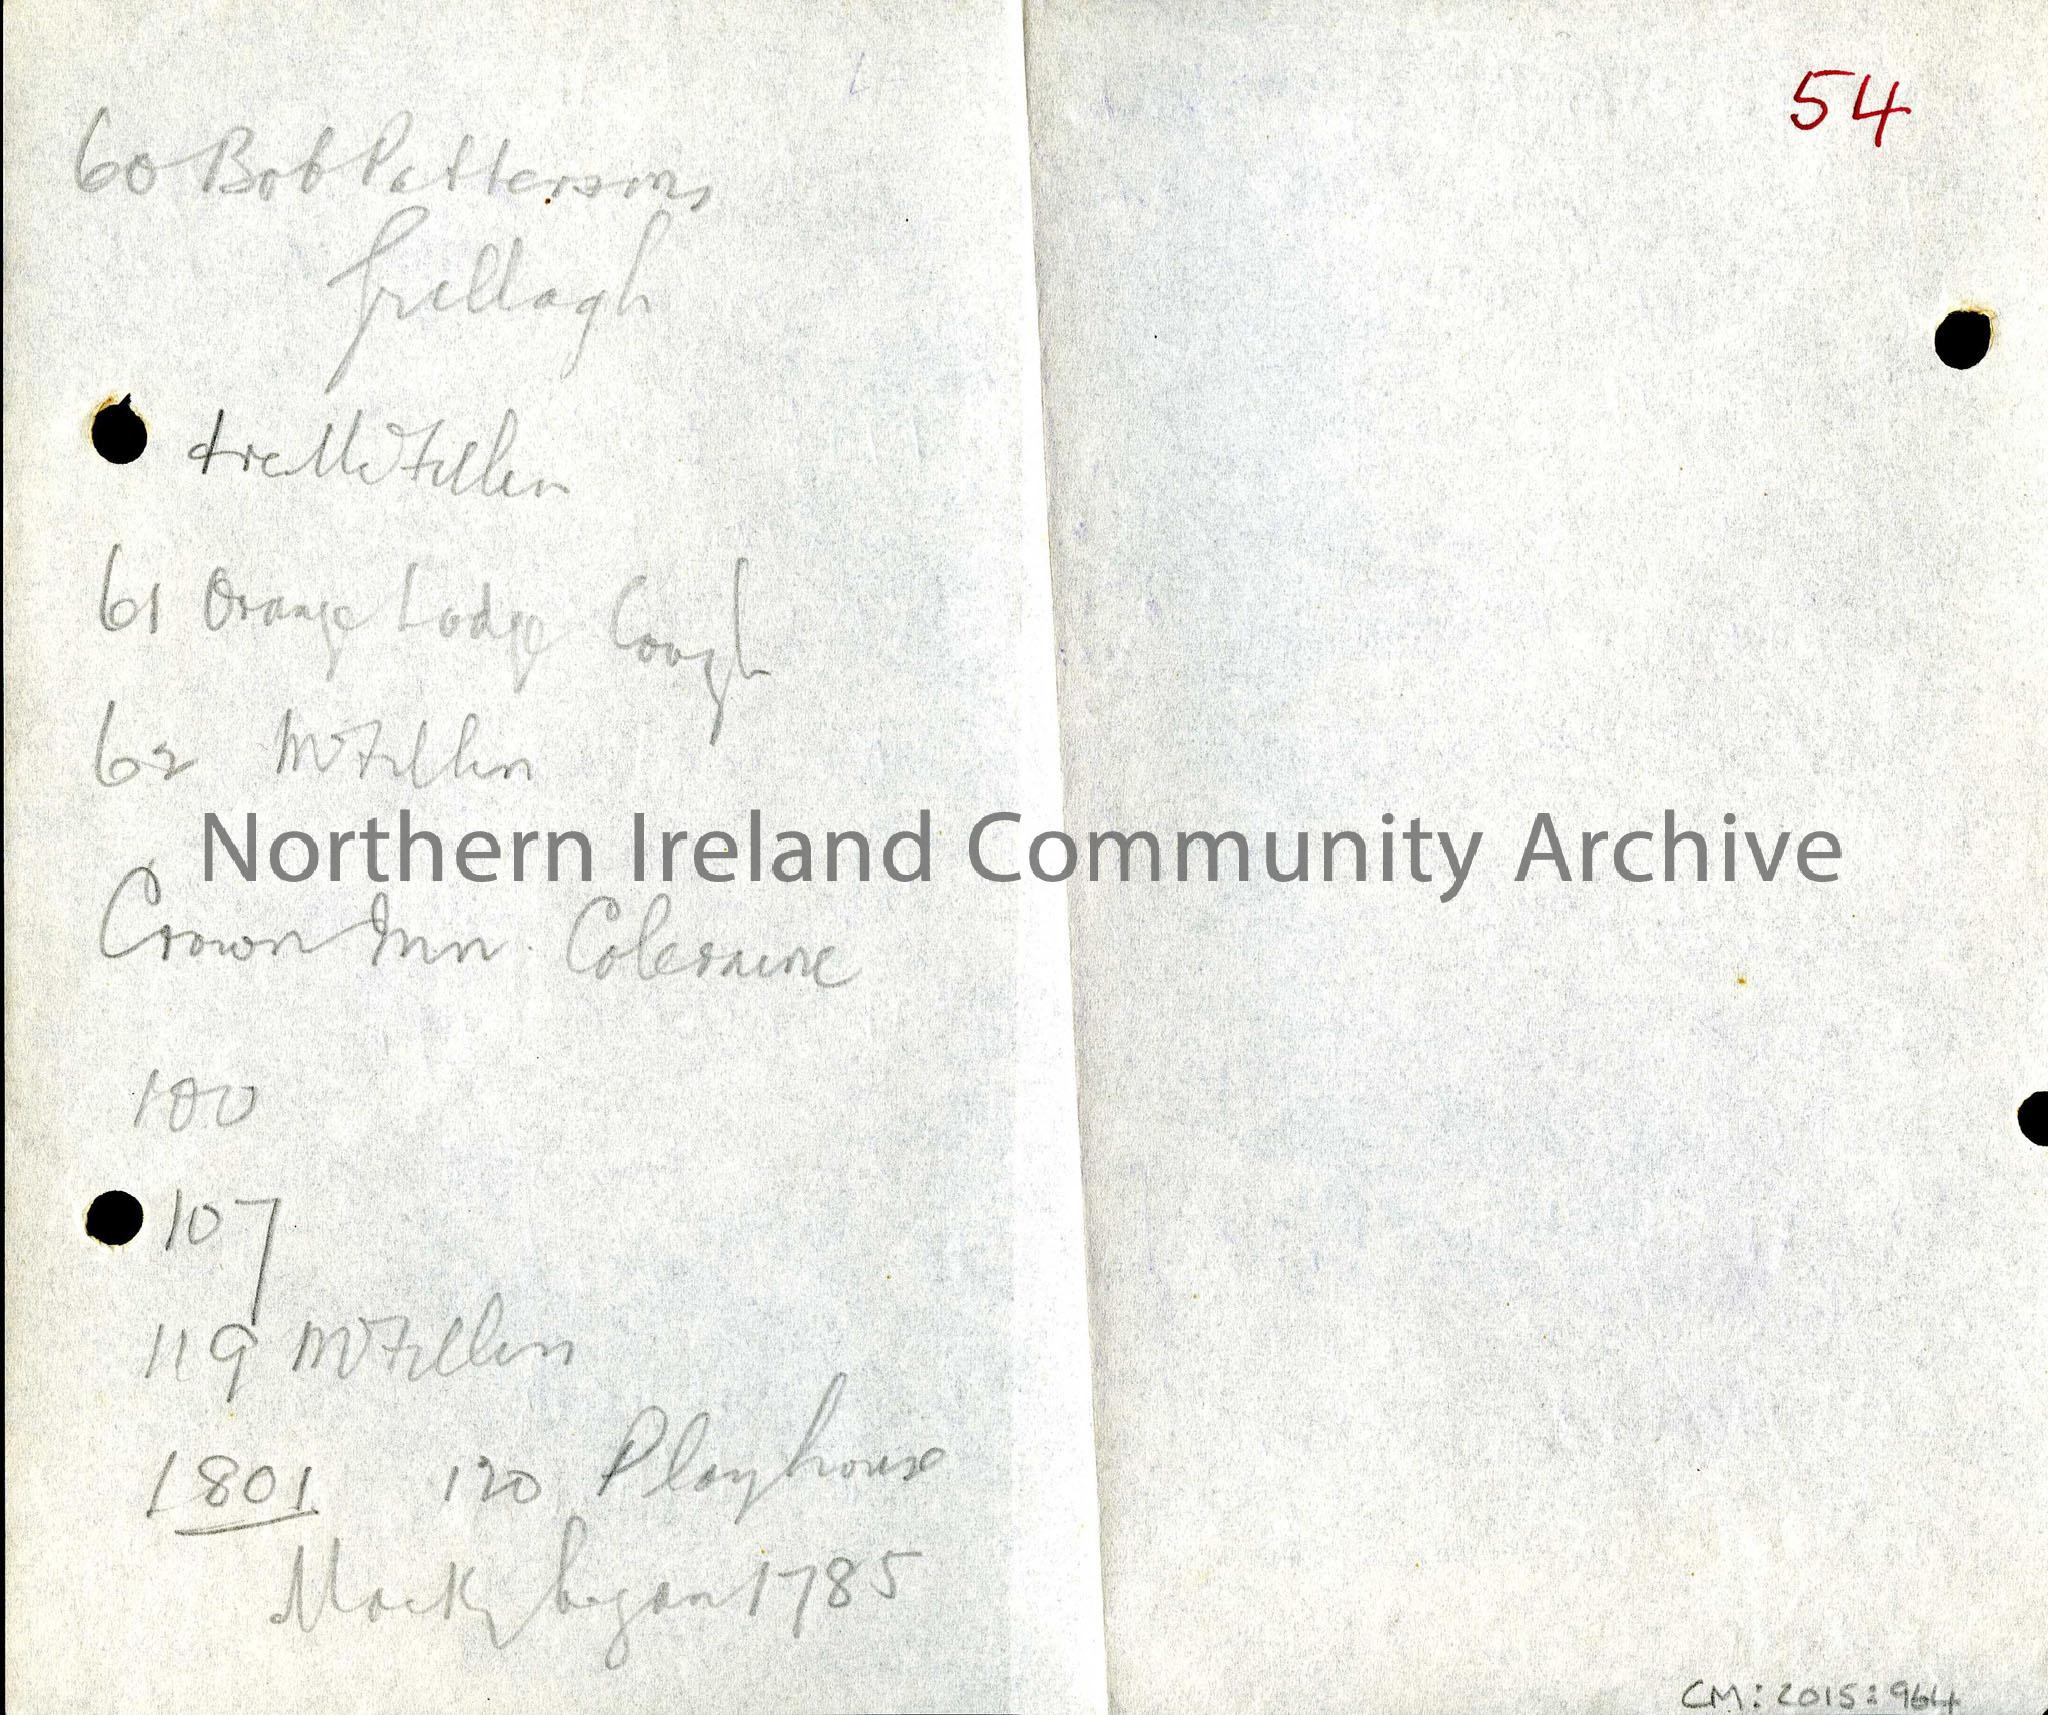 60 Bob Pattersons
Grillagh
McFillen
61 Orange Lodge Coagh
62 McFillen
Northern Ireland Community Archive
Crown Inn. Coleraine
100
107
119 McFillen
1801 120 Playhouse
Macky began 1785
54
CM:2015:964